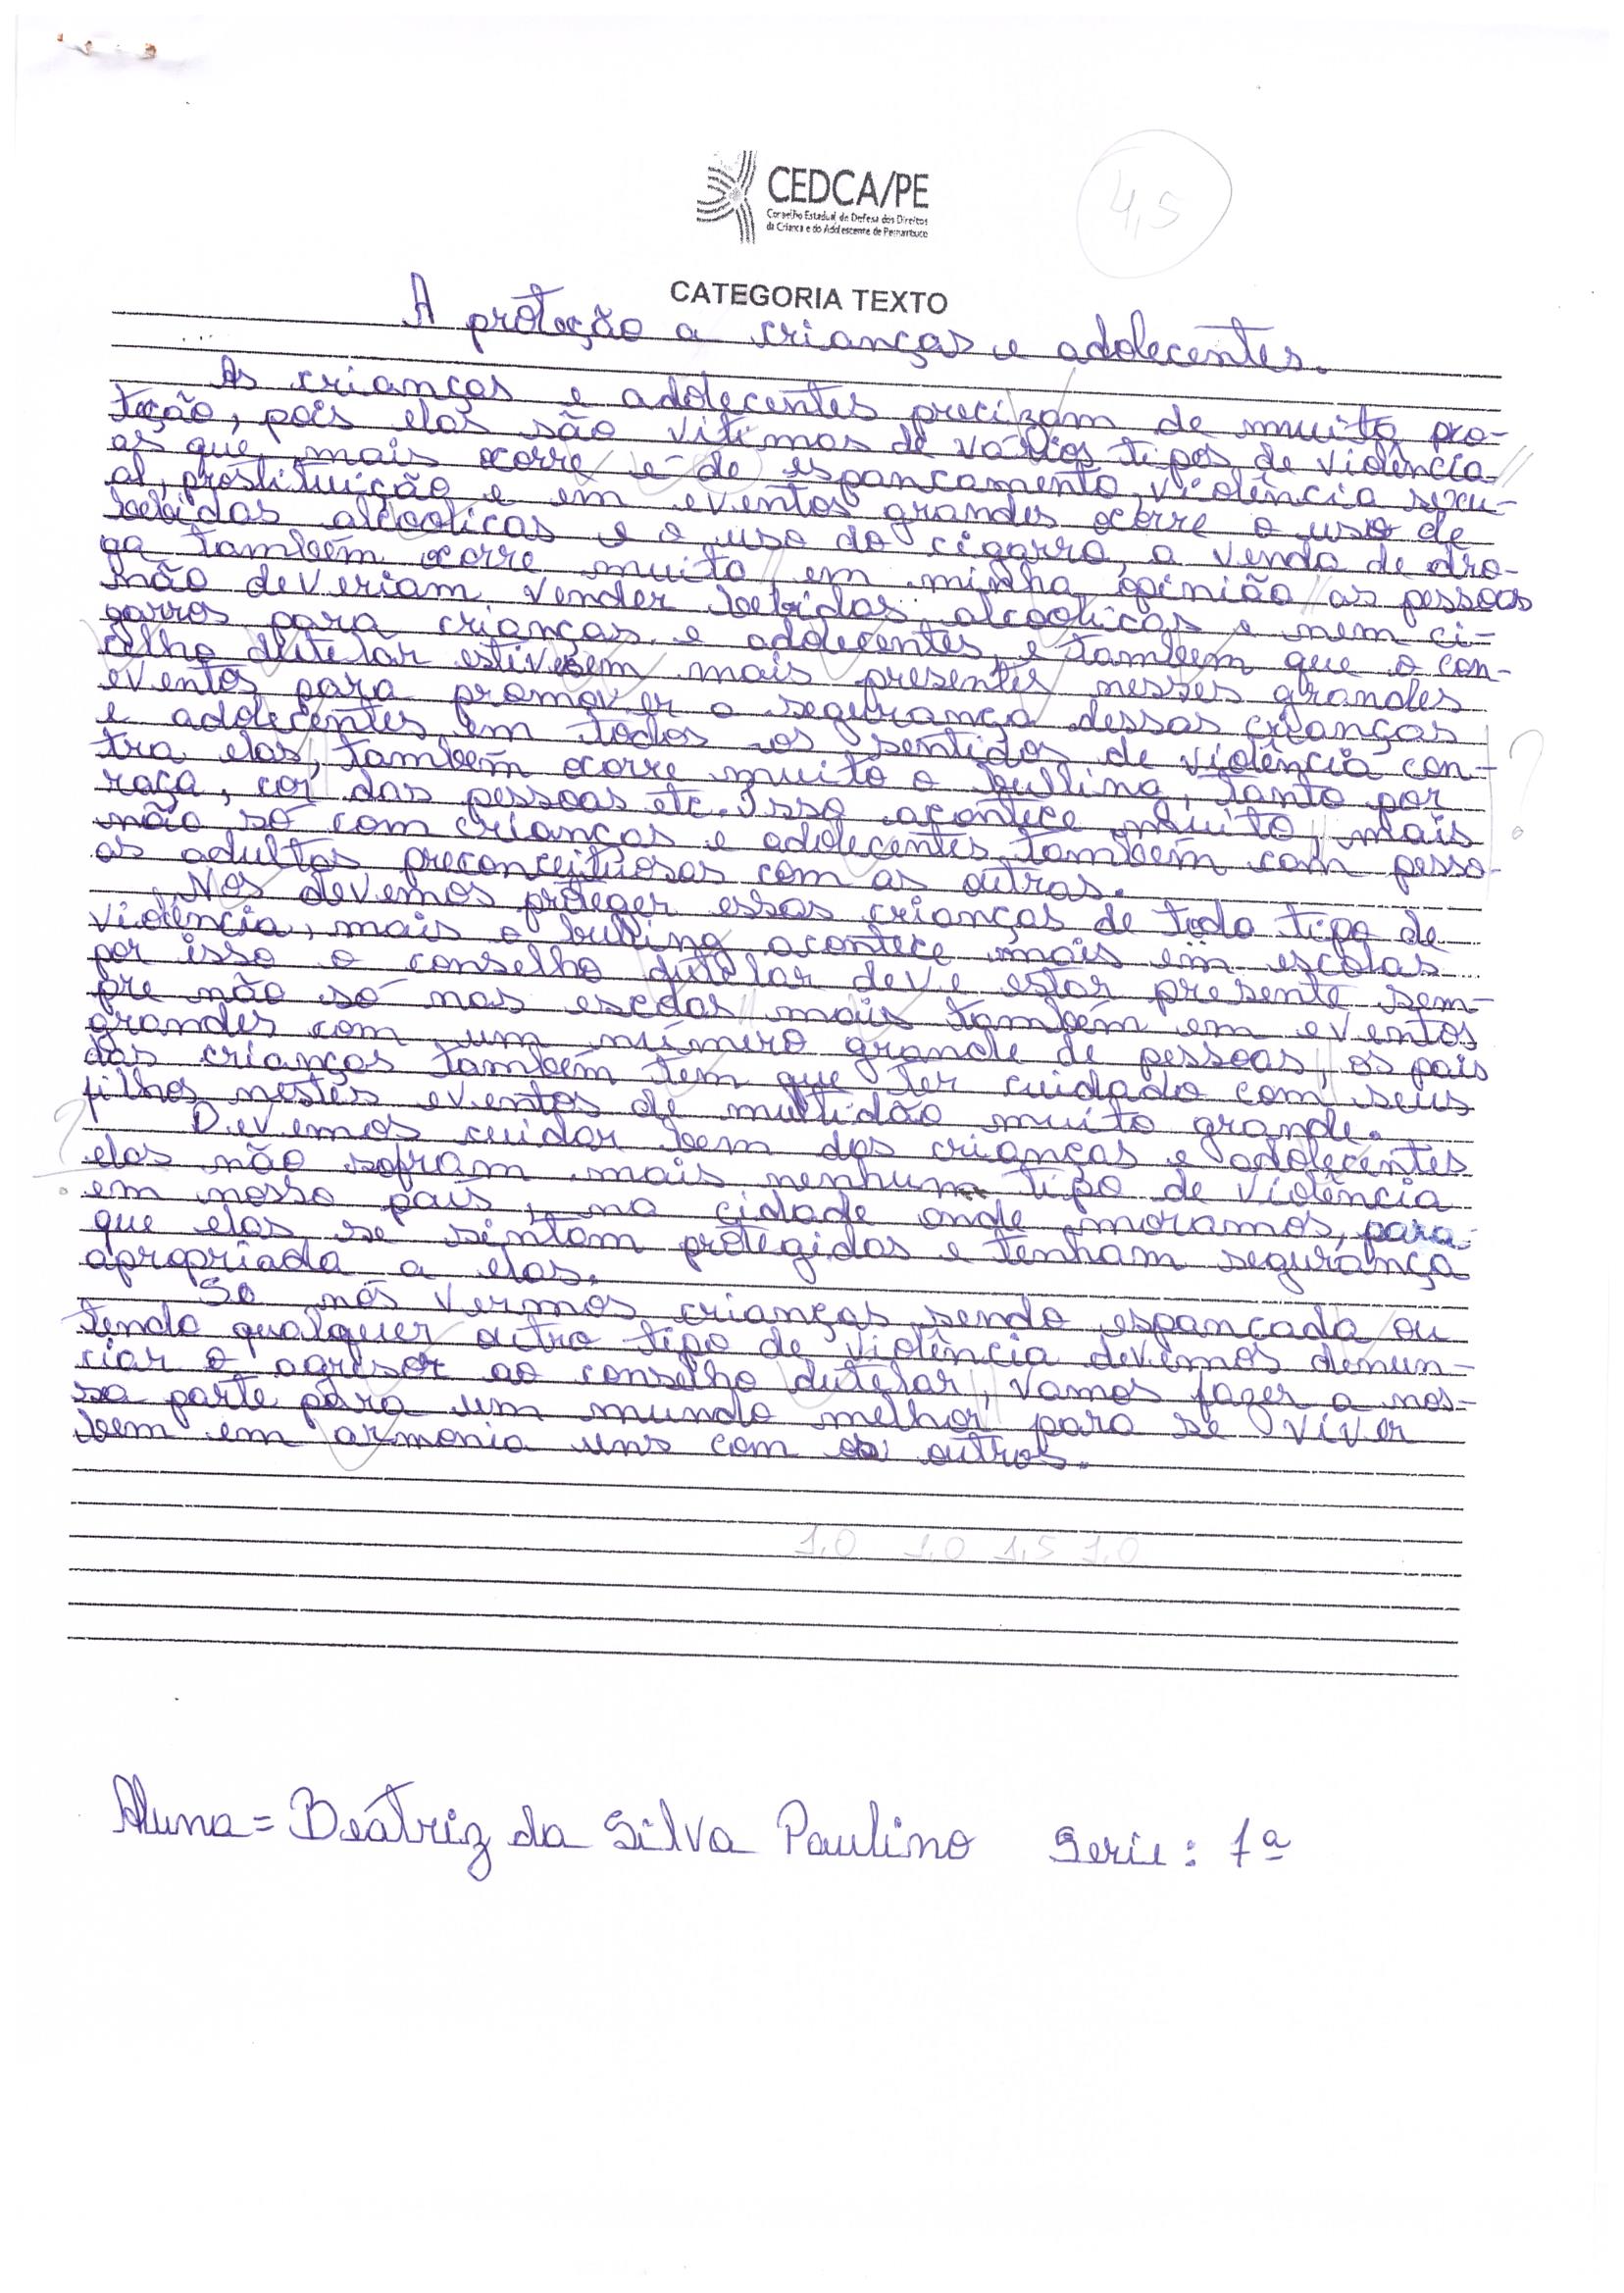 CEDCA/PE
Conselho Estadual de Defesa dos Direitos
da Criança e do Adolescente de Pernambuco
4,5
CATEGORIA TEXTO
A proteção a crianças e adolecentes.
As crianças e adolecentes precizam de muita pro-
teção, pois elas são vitimas de vários tipos de violência
as que mais ocorre e de espancamento, violência sexu-
al, prostituição e em eventos grandes ocorre o uso de
bebidas alcoolicas e o uso do cigarro, a venda de dro-
ga também ocorre muito, em minha opinião as pessoas
não deveriam vender bebidas alcoolicas e nem ci-
garros para crianças e adolecentes, e tambem que o con-
celho dutelar estivesem mais presentes nesses grandes
eventos para promover a segurança dessas crianças
e adolecentes em todos os sentidos de violência con-
tra elas, também ocorre muito o bulling, tanto por
raça, cor das pessoas etc. Isso acontece muito mais
não só com crianças e adolecentes também com pesso-
as adultas preconceituosas com as outras.
Nos devemos proteger essas crianças de todo tipo de
violência, mais o bulling acontece mais em escolas
por isso o conselho dutelar deve estar presente sem-
pre não só nas escolas mais também em eventos
grandes com um número grande de pessoas, os pais
das crianças também tem que ter cuidado com seus
filhos nestes eventos de multidão muito grande.
? Devemos cuidar bem das crianças e adolecentes ?
elas não sofram mais nenhum tipo de violência
em nosso país, na cidade onde moramos, para
que elas se sintam protegidas e tenham segurança
apropriada a elas.
Se nós vermos crianças sendo espancada ou
tendo qualquer outro tipo de violência devemos denun-
ciar o agresor ao conselho dutelar, vamos fazer a nos-
sa parte para um mundo melhor para se viver
bem em armonia uns com os outros.
1,0 1,0 1,5 1,0
Aluna = Beatriz da Silva Paulino Serie: 1ª